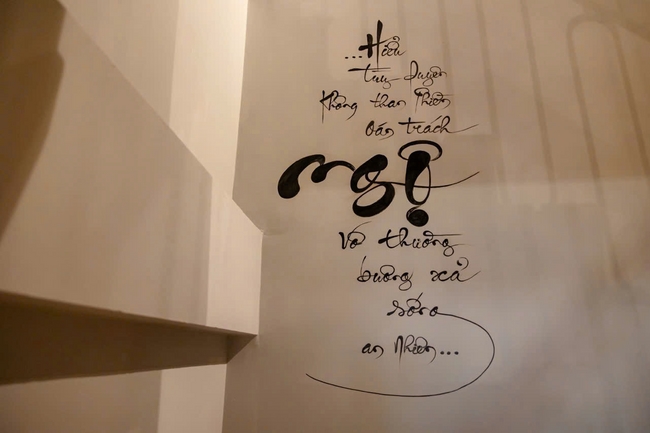 ...Hiểu
tùy duyên
không than phiền
oán trách
ngộ
vô thường
buông xả
sống
an nhiên...